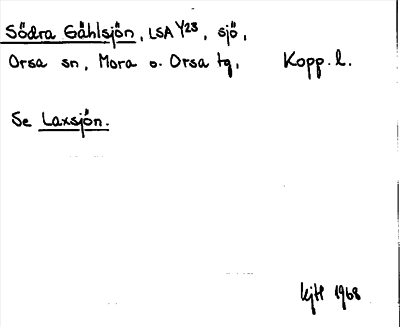 Södra Gåhlsjön, LSA Y23, sjö,
Orsa sn, Mora o. Orsa tg, Kopp. l.
Se Laxsjön.
kjH 1968